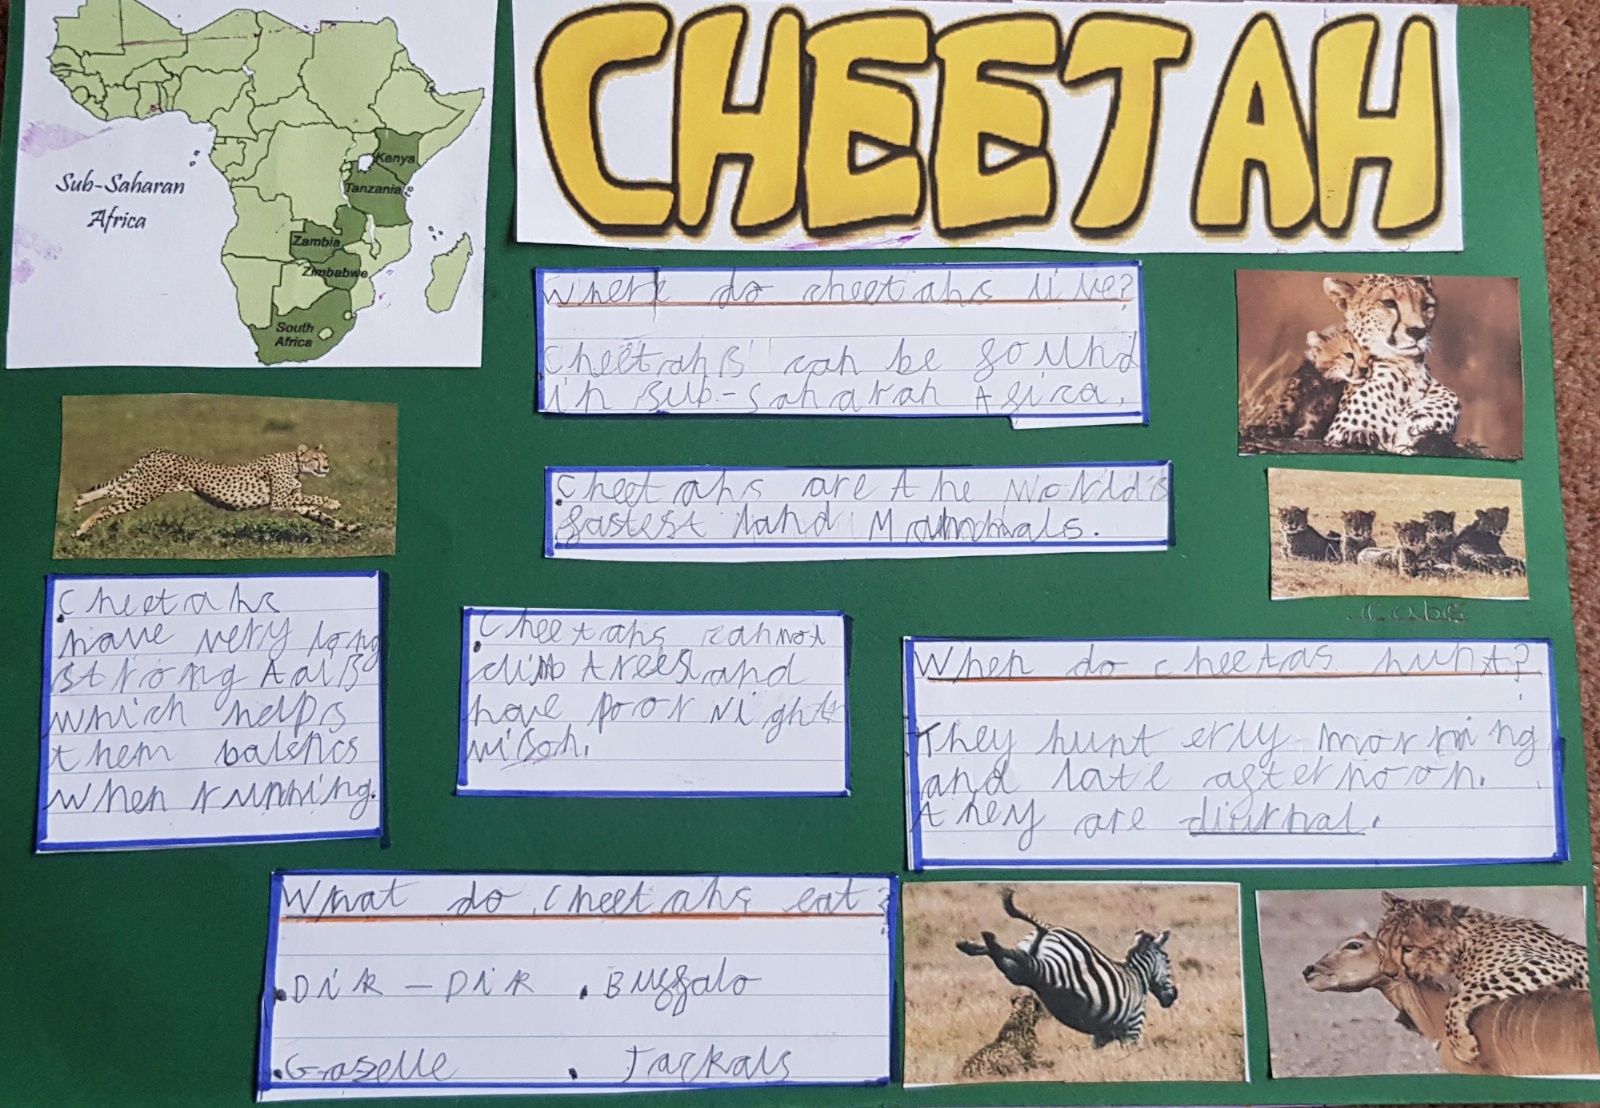 CHEETAH
Sub-Saharan
Africa
Kenya
Tanzania
Zambia
Zimbabwe
South
Africa
Where do cheetahs live?
Cheetahs can be found
in sub-saharan Africa.
Cheetahs are the world's
fastest land Mammals.
cubs
Cheetahs
have very long
strong tails
which helps
them balencs
when running.
Cheetahs cannot
climb trees and
have poor Night
vison.
When do cheetas hunt?
They hunt erly morning
and late afternoon.
they are diurnal.
What do cheetahs eat?
• Dik - Dik • Buffalo
• Gazelle • Jackals